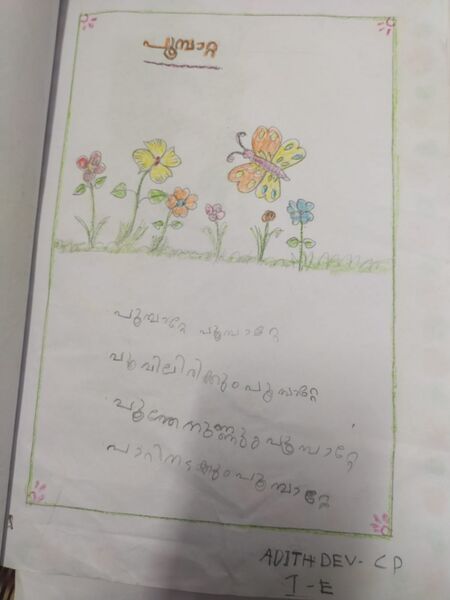 പൂമ്പാറ്റ
പൂമ്പാറ്റേ പൂമ്പാറ്റേ
പൂവിലിരിക്കും പൂമ്പാറ്റേ
പൂന്തേനുണ്ണും പൂമ്പാറ്റേ
പാറിനടക്കും പൂമ്പാറ്റേ
ADITH DEV - C P
I - E